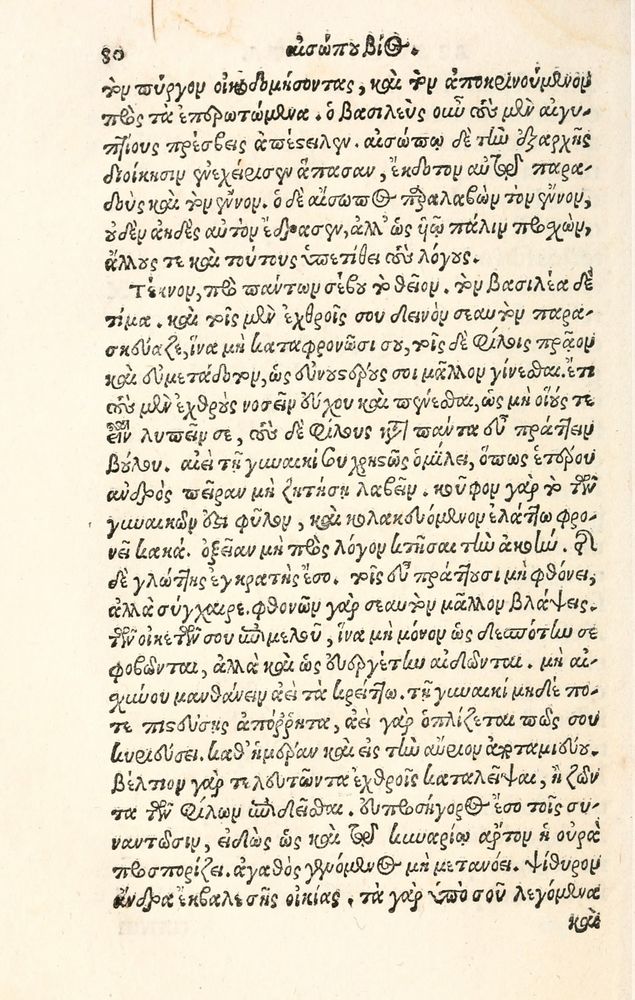 80 αἰσώπου βίος.
τὸν πύργον οἰκοδομήσοντας, καὶ τὸν ἀποκρινούμενον
πρὸς τὰ ἐπερωτώμενα. ὁ βασιλεὺς οὖν τοὺς μὲν αἰγυ-
πτίους πρέσβεις ἀπέστειλεν. αἰσώπῳ δὲ τὴν ἐξαρχῆς
διοίκησιν ἐνεχείρισεν ἅπασαν, ἔκδοτον αὐτῷ παρα-
δοὺς καὶ τὸν ἔννον. ὁ δὲ αἴσωπος παραλαβὼν τὸν ἔννον,
οὐδὲν ἀηδὲς αὐτὸν ἔδρασεν, ἀλλ' ὡς υἱῷ πάλιν προσχὼν,
ἄλλους τε καὶ τούτους ὑπετίθει τοὺς λόγους.
Τέκνον, πρὸ πάντων σέβου τὸ θεῖον. τὸν βασιλέα δὲ
τίμα. καὶ τοῖς μὲν ἐχθροῖς σου δεινὸν σεαυτὸν παρα-
σκεύαζε, ἵνα μὴ καταφρονῶσί σου, τοῖς δὲ φίλοις πρᾷον
καὶ εὐμετάδοτον, ὡς εὐνουστέρους σοι μᾶλλον γίνεσθαι. ἔτι
τοὺς μὲν ἐχθροὺς νοσεῖν εὔχου καὶ πένεσθαι, ὡς μὴ οἵους τε
εἶναι λυπεῖν σε, τοὺς δὲ φίλους κατὰ πάντα εὖ πράττειν
βούλου. αἰεὶ τῇ γυναικί σου χρηστῶς ὁμίλει, ὅπως ἑτέρου
ἀνδρὸς πεῖραν μὴ ζητήσῃ λαβεῖν. κοῦφον γὰρ τὸ τῶν
γυναικῶν ἐστι φῦλον, καὶ κολακευόμενον ἐλάττω φρο-
νεῖ κακά. ὀξεῖαν μὴ πρὸς λόγον κτῆσαι τὴν ἀκοήν. τῆς
δὲ γλώττης ἐγκρατὴς ἔσο. τοῖς εὖ πράττουσι μὴ φθόνει,
ἀλλὰ σύγχαιρε. φθονῶν γὰρ σεαυτὸν μᾶλλον βλάψεις.
τῶν οἰκετῶν σου ἐπιμελοῦ, ἵνα μὴ μόνον ὡς δεσπότην σε
φοβῶνται, ἀλλὰ καὶ ὡς εὐεργέτην αἰδῶνται. μὴ αἰ-
σχύνου μανθάνειν ἀεὶ τὰ κρείττω. τῇ γυναικὶ μηδέ πο-
τε πιστεύσῃς ἀπόῤῥητα, ἀεὶ γὰρ ὁπλίζεται πῶς σου
κυριεύσει. καθ' ἡμέραν καὶ εἰς τὴν αὔριον ἀποταμιεύου.
βέλτιον γὰρ τελευτῶντα ἐχθροῖς καταλεῖψαι, ἢ ζῶν
τα τῶν φίλων ἐπιδεῖσθαι. εὐπροσήγορος ἔσο τοῖς συ-
ναντῶσιν, εἰδὼς ὡς καὶ τῷ κυναρίῳ ἄρτον ἡ οὐρὰ
προσπορίζει. ἀγαθὸς γενόμενος μὴ μετανόει. ψίθυρον
ἄνδρα ἔκβαλε σῆς οἰκίας. τὰ γὰρ ὑπὸ σοῦ λεγόμενα
καὶ